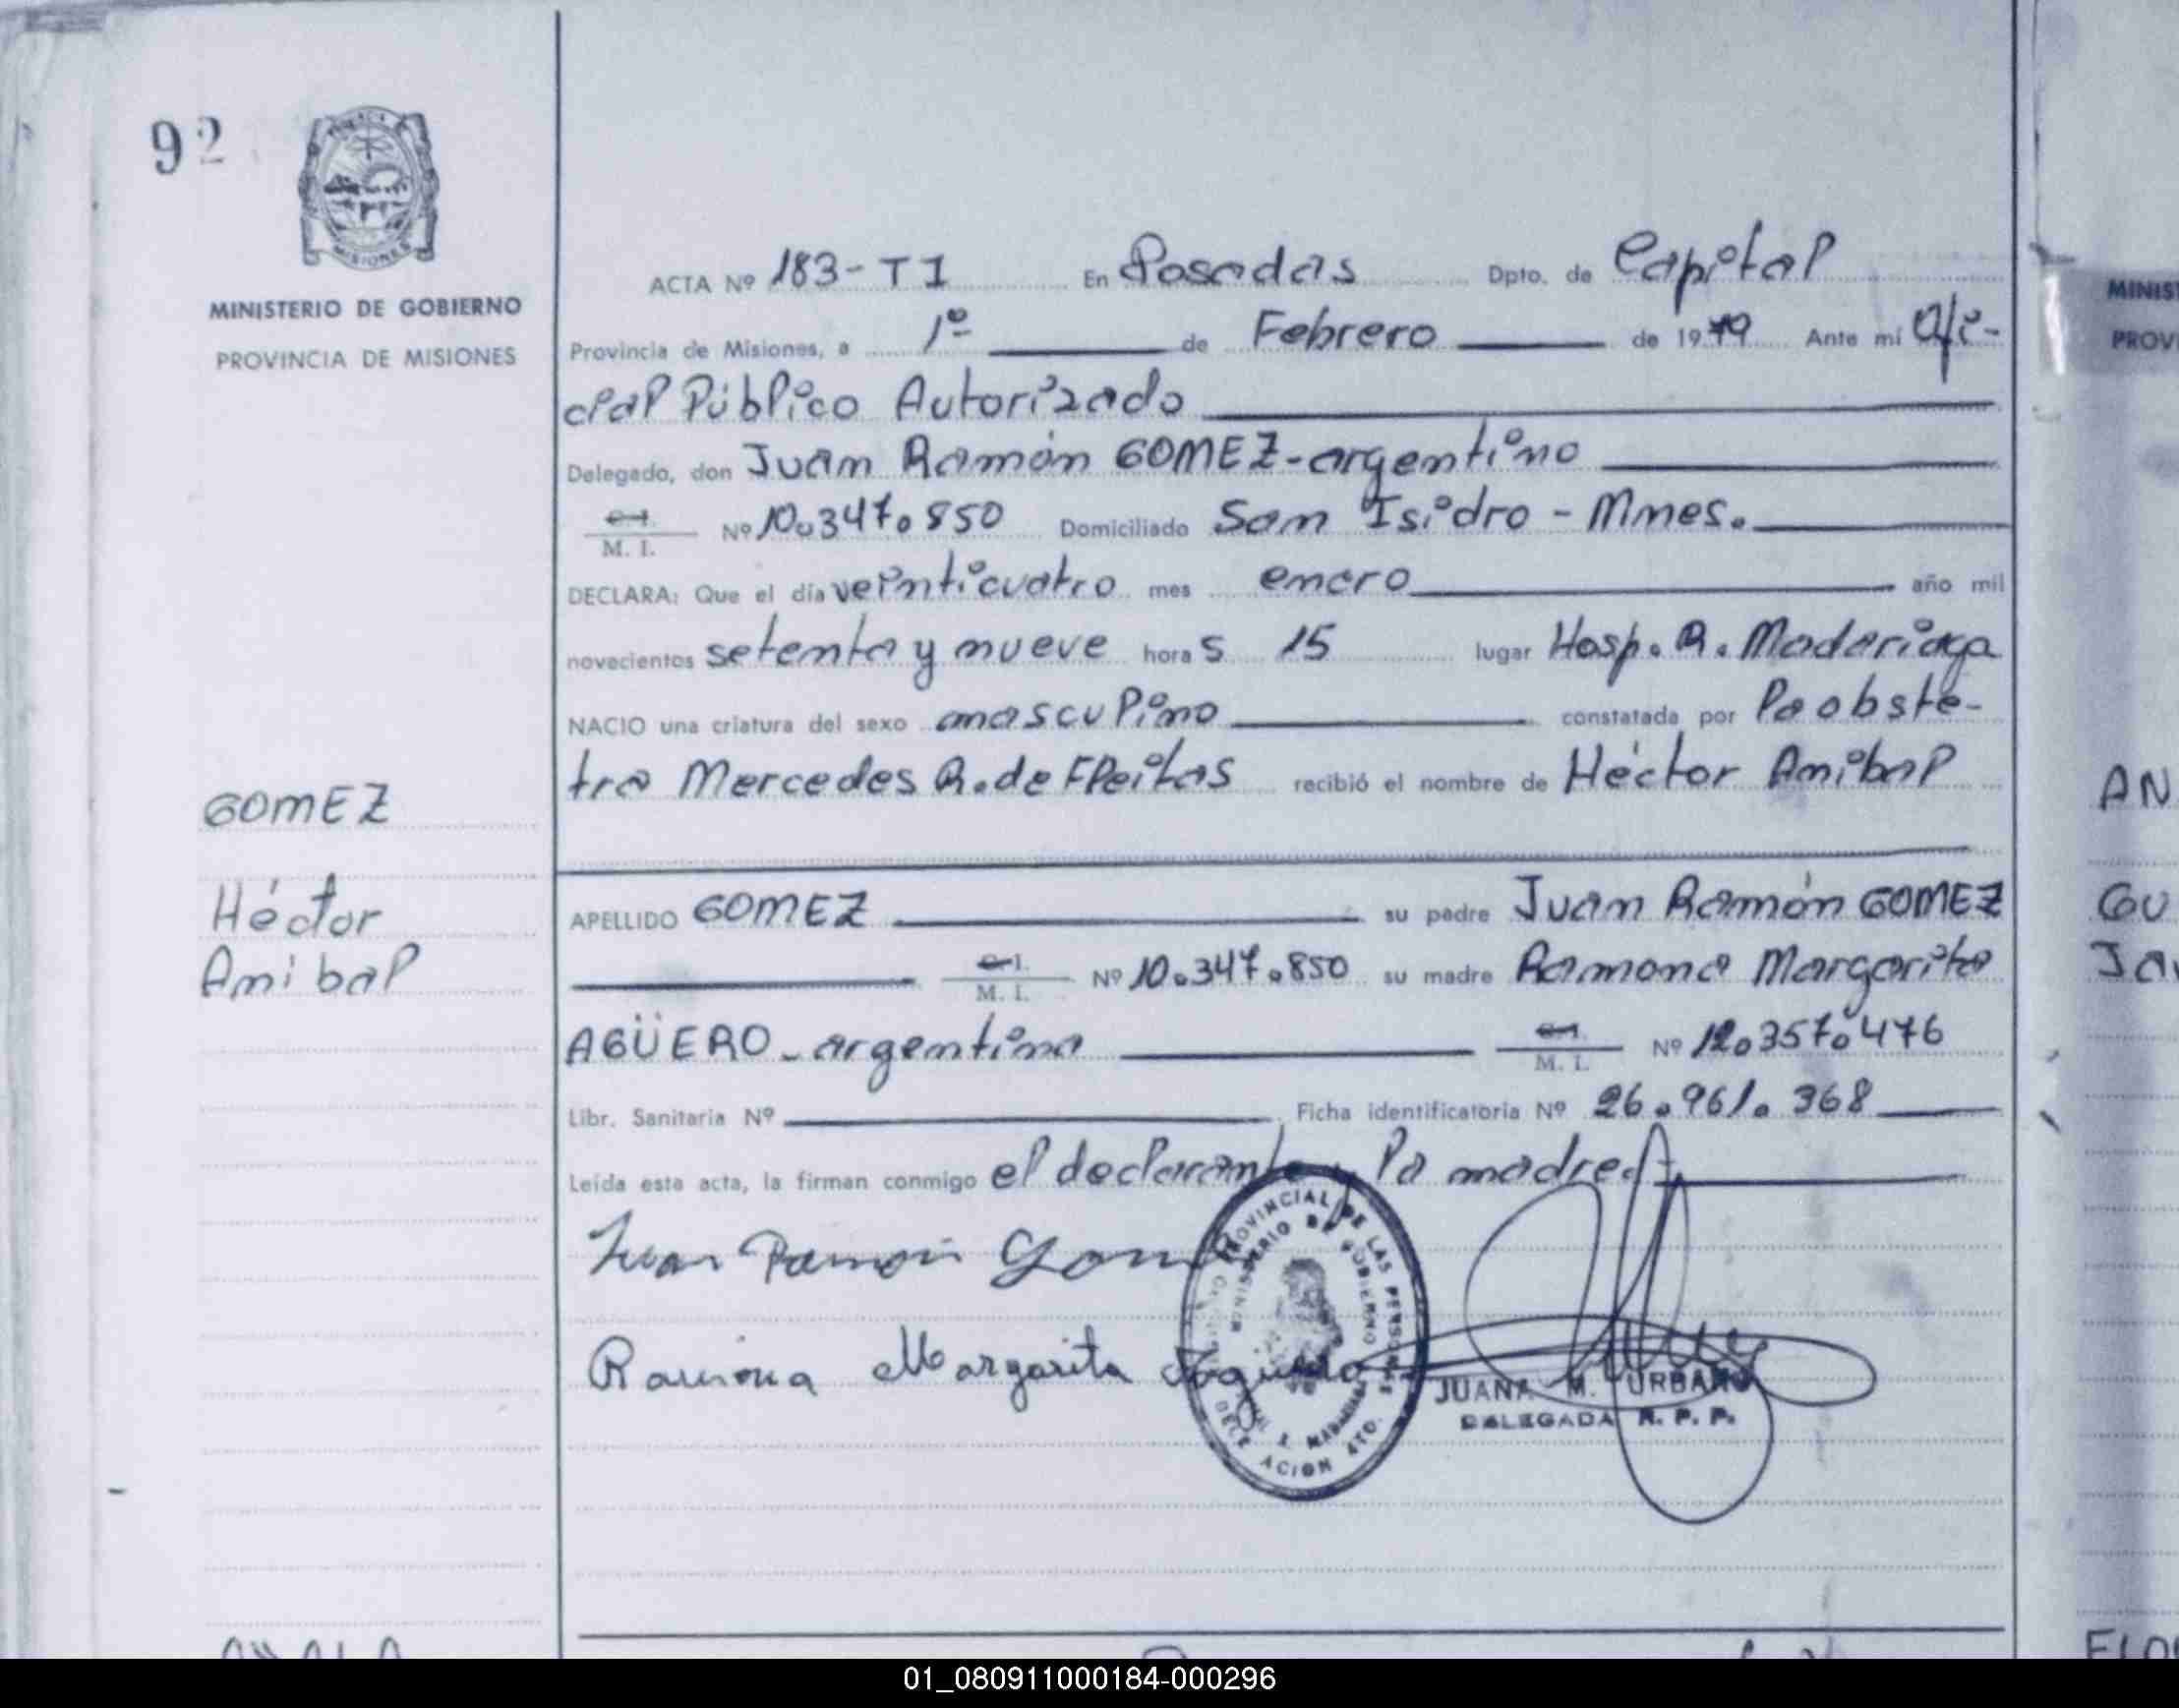 92
MISIONES
MINISTERIO DE GOBIERNO
PROVINCIA DE MISIONES
GOMEZ
Héctor
Anibal
ACTA Nº 183-T I En Posadas Dpto. de Capital
Provincia de Misiones, a 1º de Febrero de 1979 Ante mí Ofi-
cial Público Autorizado
Delegado, don Juan Ramón GOMEZ-argentino
C.I. M. I. Nº 10.347.850 Domiciliado San Isidro - Mnes.
DECLARA: Que el día veinticuatro mes enero año mil
novecientos setenta y nueve horas 15 lugar Hosp. R. Madariaga
NACIO una criatura del sexo masculino constatada por la obste-
tra Mercedes R. de Fleitas recibió el nombre de Héctor Anibal
APELLIDO GOMEZ su padre Juan Ramón GOMEZ
C.I. M. I. Nº 10.347.850 su madre Ramona Margarita
AGÜERO - argentina C.I. M. I. Nº 12.357.476
Libr. Sanitaria Nº Ficha identificatoria Nº 26.961.368
Leída esta acta, la firman conmigo el declarante y la madre.
Juan Ramón Gomez
Ramona Margarita Aguero
PROVINCIAL DE LAS PERSONAS
MINISTERIO DE GOBIERNO
JUANA M. URBANO
DELEGADA R. P. P.
MINIS
PROV
AN
GU
Ja
01_080911000184-000296